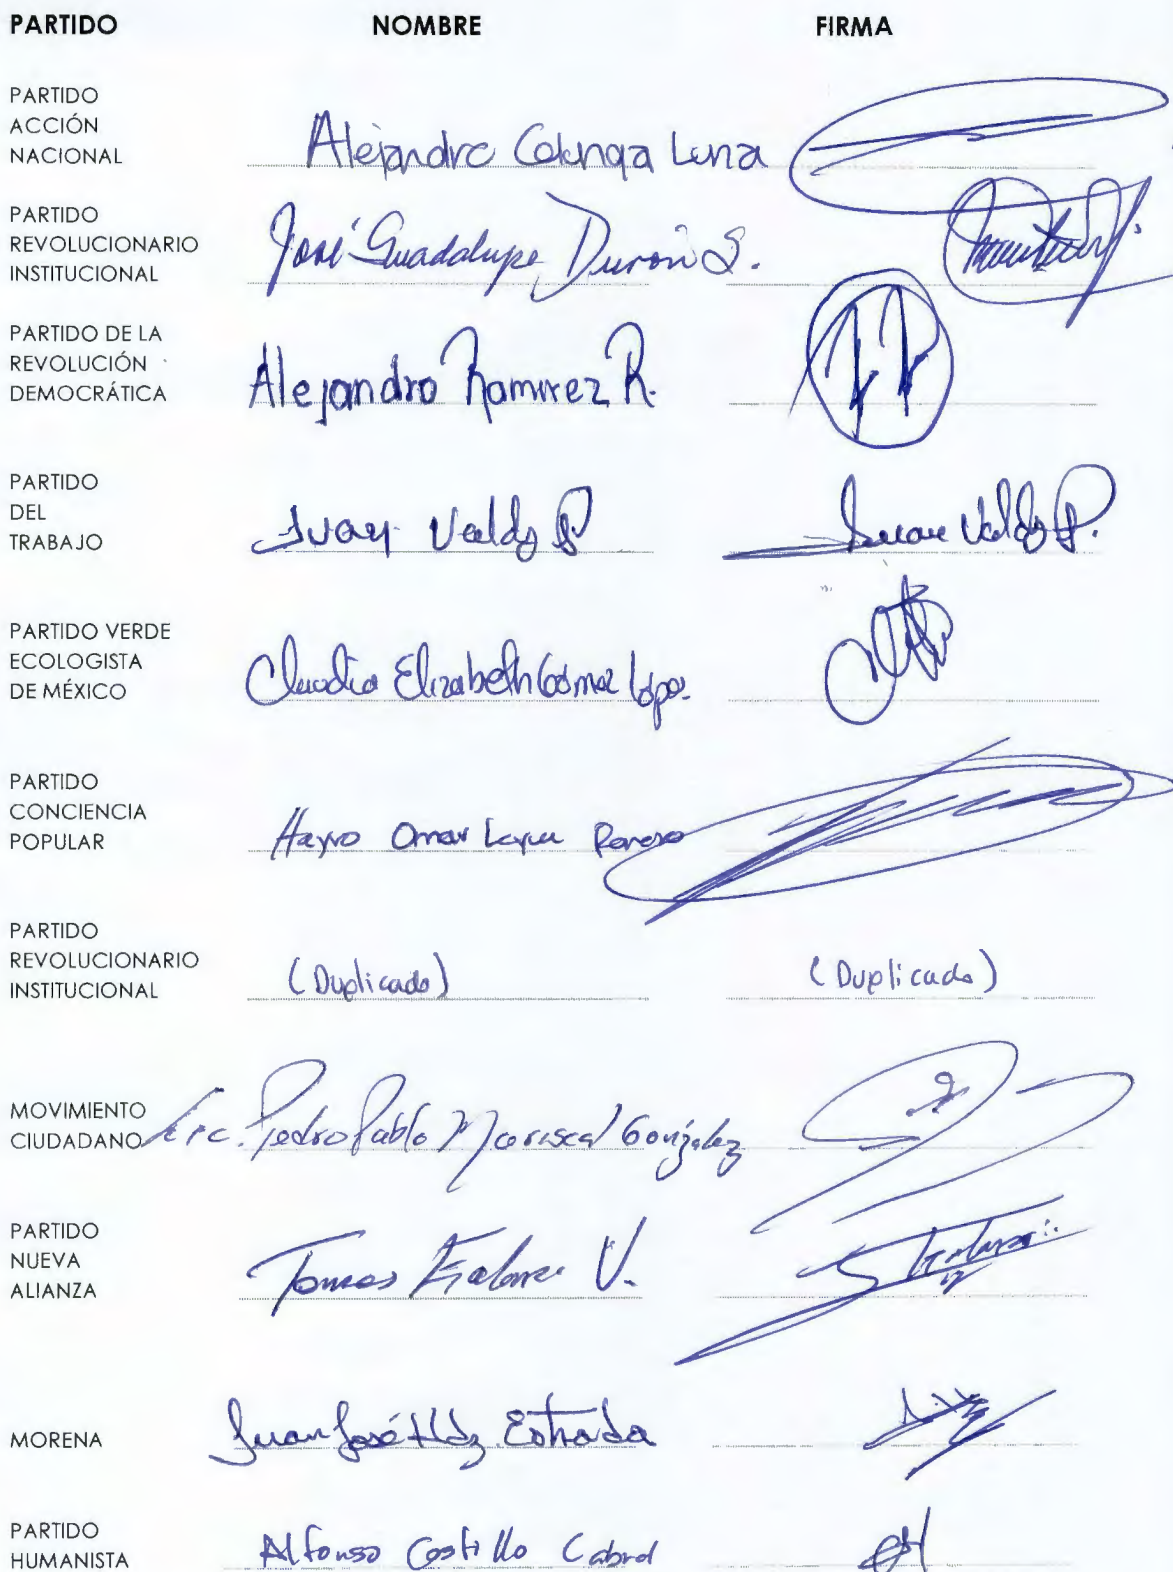 PARTIDO NOMBRE FIRMA
PARTIDO
ACCIÓN
NACIONAL
Alejandro Colunga Luna
PARTIDO
REVOLUCIONARIO
INSTITUCIONAL
José Guadalupe Durón S.
PARTIDO DE LA
REVOLUCIÓN
DEMOCRÁTICA
Alejandro Ramirez R.
PARTIDO
DEL
TRABAJO
Juan Valdz P. Juan Valdz P.
PARTIDO VERDE
ECOLOGISTA
DE MÉXICO
Claudia Elizabeth Gómez López
PARTIDO
CONCIENCIA
POPULAR
Omar
PARTIDO
REVOLUCIONARIO
INSTITUCIONAL
(Duplicado) (Duplicado)
MOVIMIENTO
CIUDADANO
Lic. Pedro Pablo Mariscal González
PARTIDO
NUEVA
ALIANZA
Tomas V.
MORENA
Juan José Hdz Estrada
PARTIDO
HUMANISTA
Alfonso Castillo Cabral